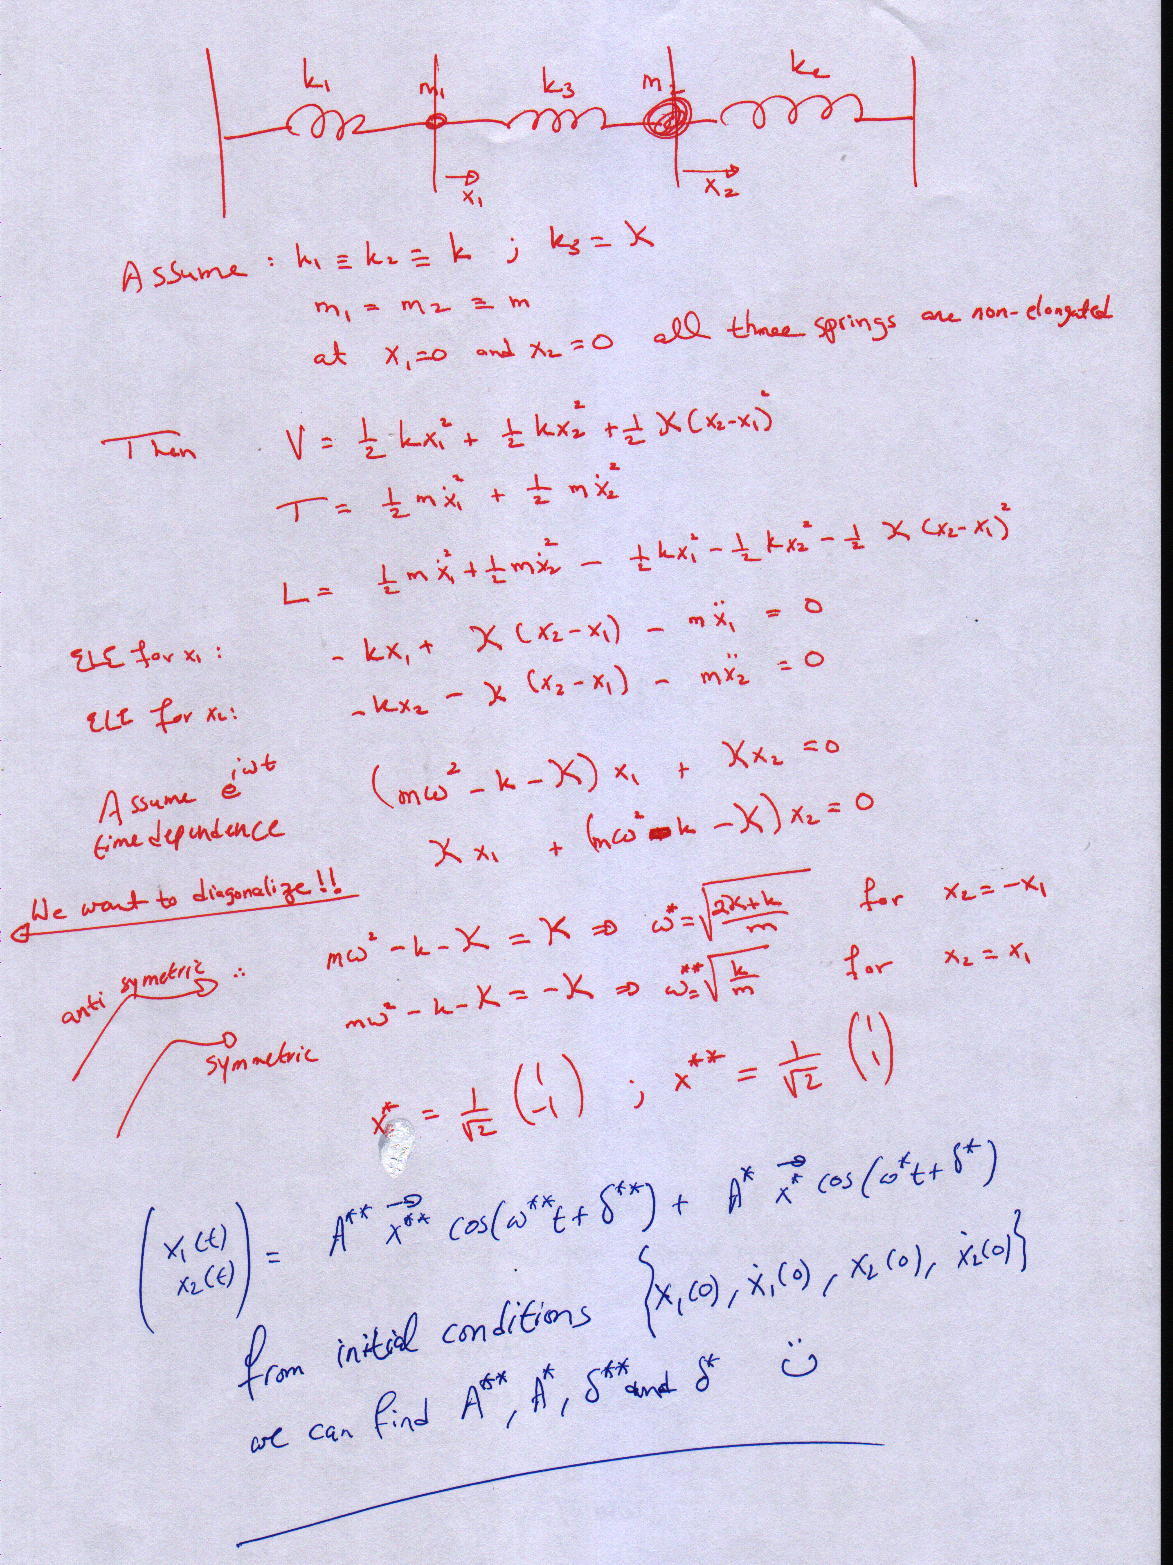 k₁ m₁ k₃ m₂ k₂
x₁ x₂
Assume : k₁ ≡ k₂ ≡ k ; k₃ = K
m₁ = m₂ ≡ m
at x₁=0 and x₂=0 all three springs are non-elongated
Then V = ½ kx₁² + ½ kx₂² + ½ K(x₂-x₁)²
T = ½ mẋ₁² + ½ mẋ₂²
L = ½ mẋ₁² + ½ mẋ₂² - ½ kx₁² - ½ kx₂² - ½ K (x₂-x₁)²
ELE for x₁ : - kx₁ + K (x₂-x₁) - mẍ₁ = 0
ELE for x₂: - kx₂ - K (x₂-x₁) - mẍ₂ = 0
Assume e^{iωt} (mω² - k - K) x₁ + Kx₂ = 0
time dependence K x₁ + (mω² - k - K) x₂ = 0
We want to diagonalize!!
anti symetric ∴ mω² - k - K = K ⇒ ω* = √((2K+k)/m) for x₂ = -x₁
symmetric mω² - k - K = -K ⇒ ω** = √(k/m) for x₂ = x₁
x* = 1/√2 (1 -1) ; x** = 1/√2 (1 1)
(x₁(t) x₂(t)) = A** x⃗** cos(ω**t + δ**) + A* x⃗* cos(ω*t + δ*)
from initial conditions {x₁(0), ẋ₁(0), x₂(0), ẋ₂(0)}
we can find A**, A*, δ** and δ* ಠ